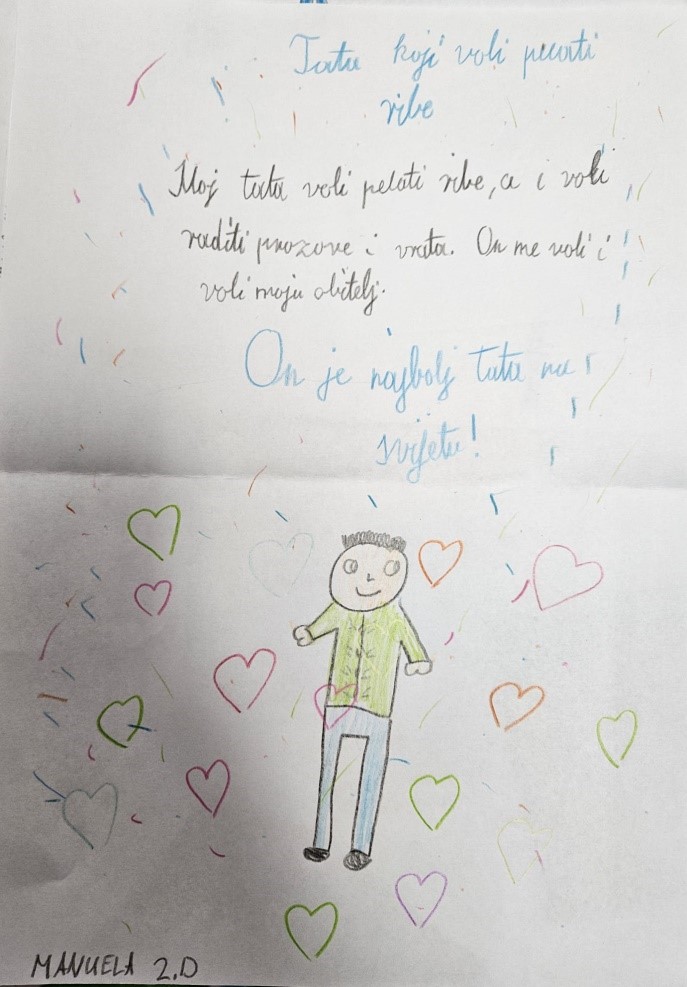 Tata koji voli pecati
ribe
Moj tata voli pecati ribe, a i voli
raditi prozore i vrata. On me voli i
voli moju obitelj.
On je najbolj tata na
svijetu!
MANUELA 2.D